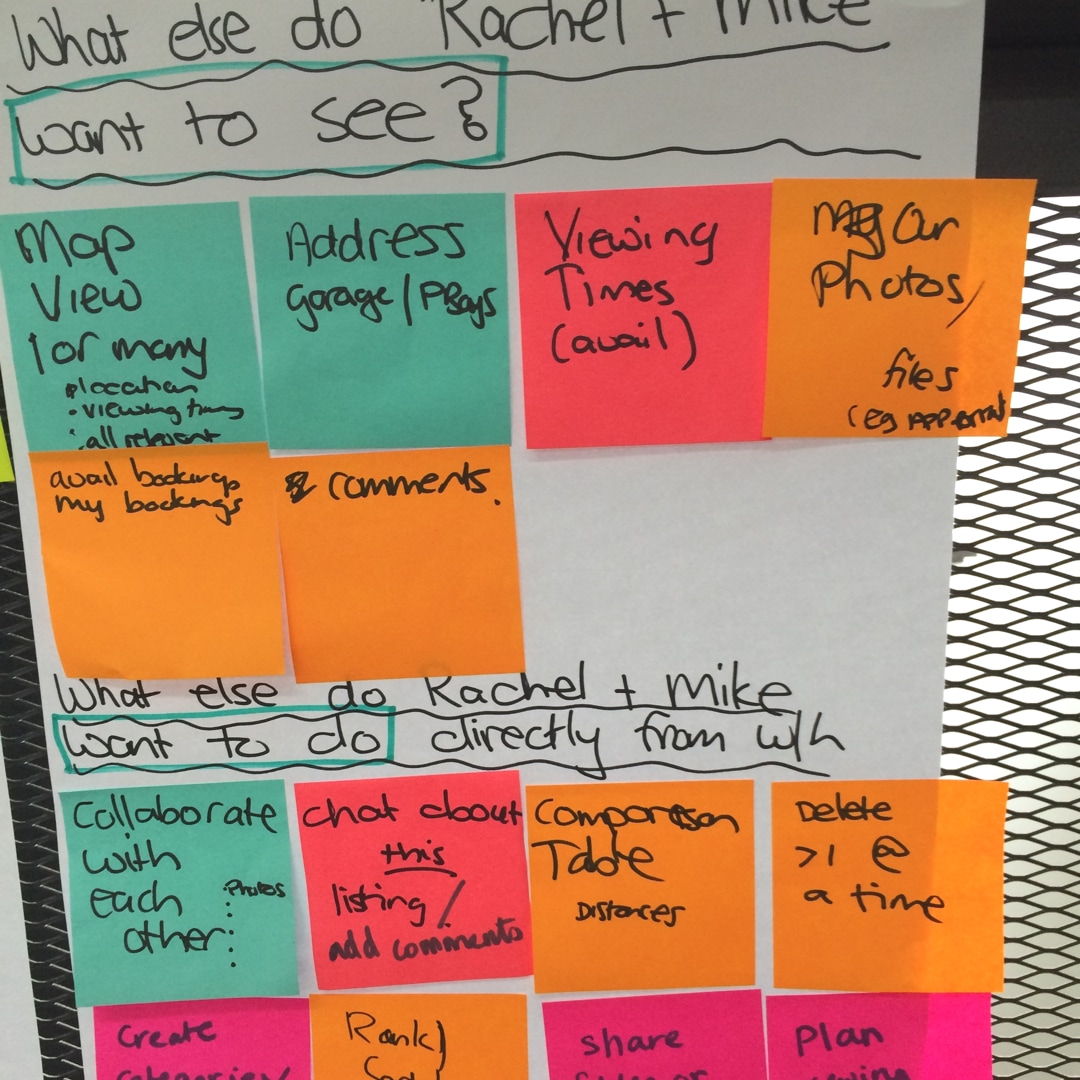 What else do Rachel + Mike
want to see?
Map
View
1 or many
• location
• viewing times
• all relevant
Address
garage / PBays
Viewing
Times
(avail)
Our
Photos/
files
(eg app.
avail bookings
my bookings
comments.
What else do Rachel + Mike
want to do directly from w/h
Collaborate
with
each
other:
Photos
chat about
this
listing /
add comments
Comparison
Table
Distances
Delete
>1 @
a time
Create
categories/
Rank/
share
Plan